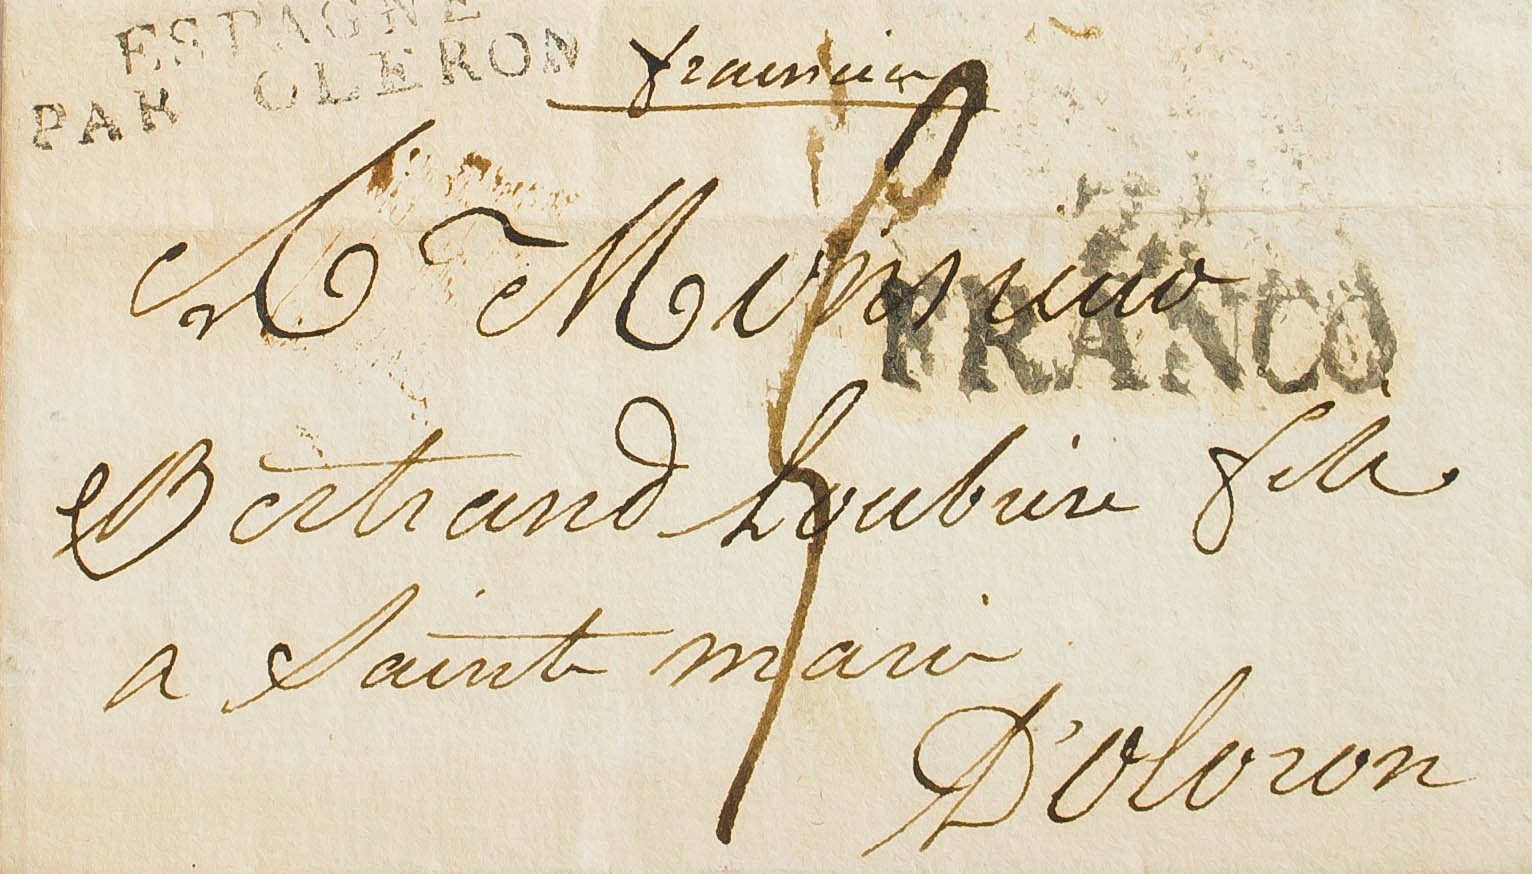 ESPAGNE
PAR OLERON
francia
A Monsieur
FRANCO
Bertrand Loubière fils
a Saint marie
D'Oloron